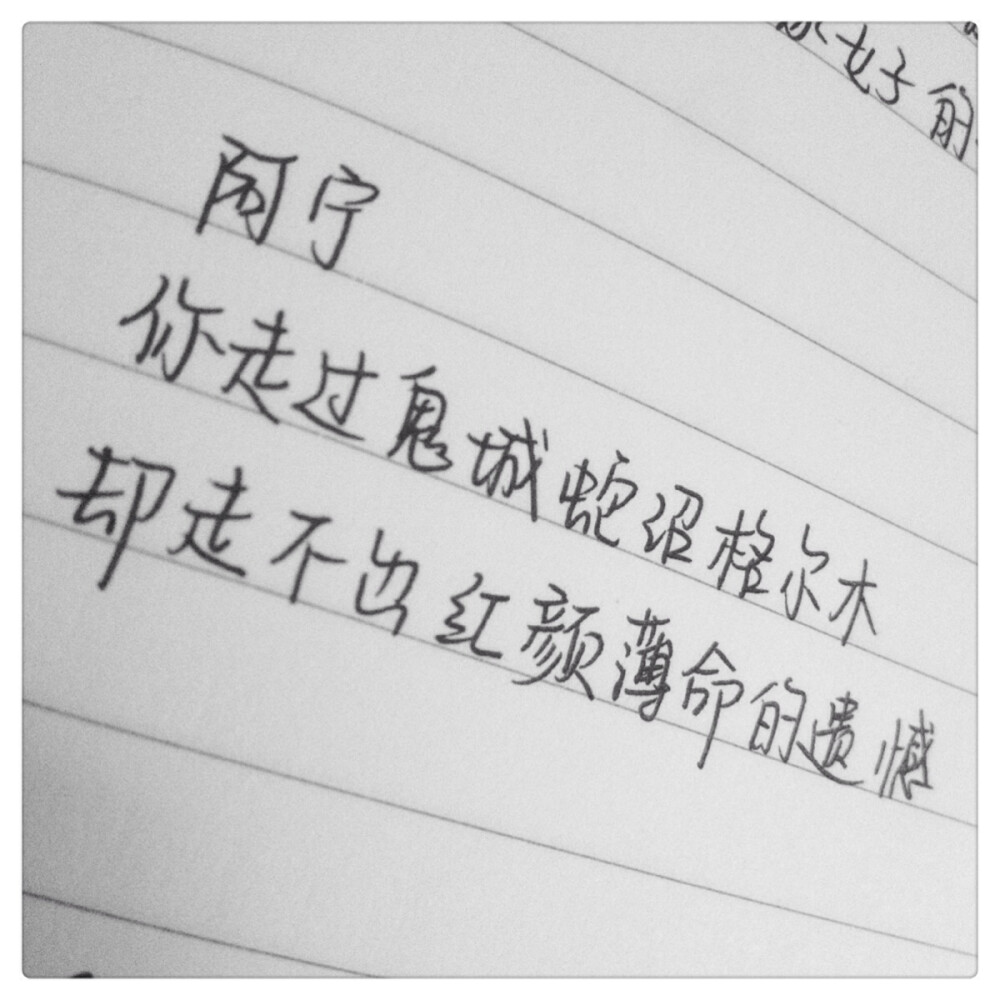 女子的
阿宁
你走过鬼城蛇沼格尔木
却走不出红颜薄命的遗憾